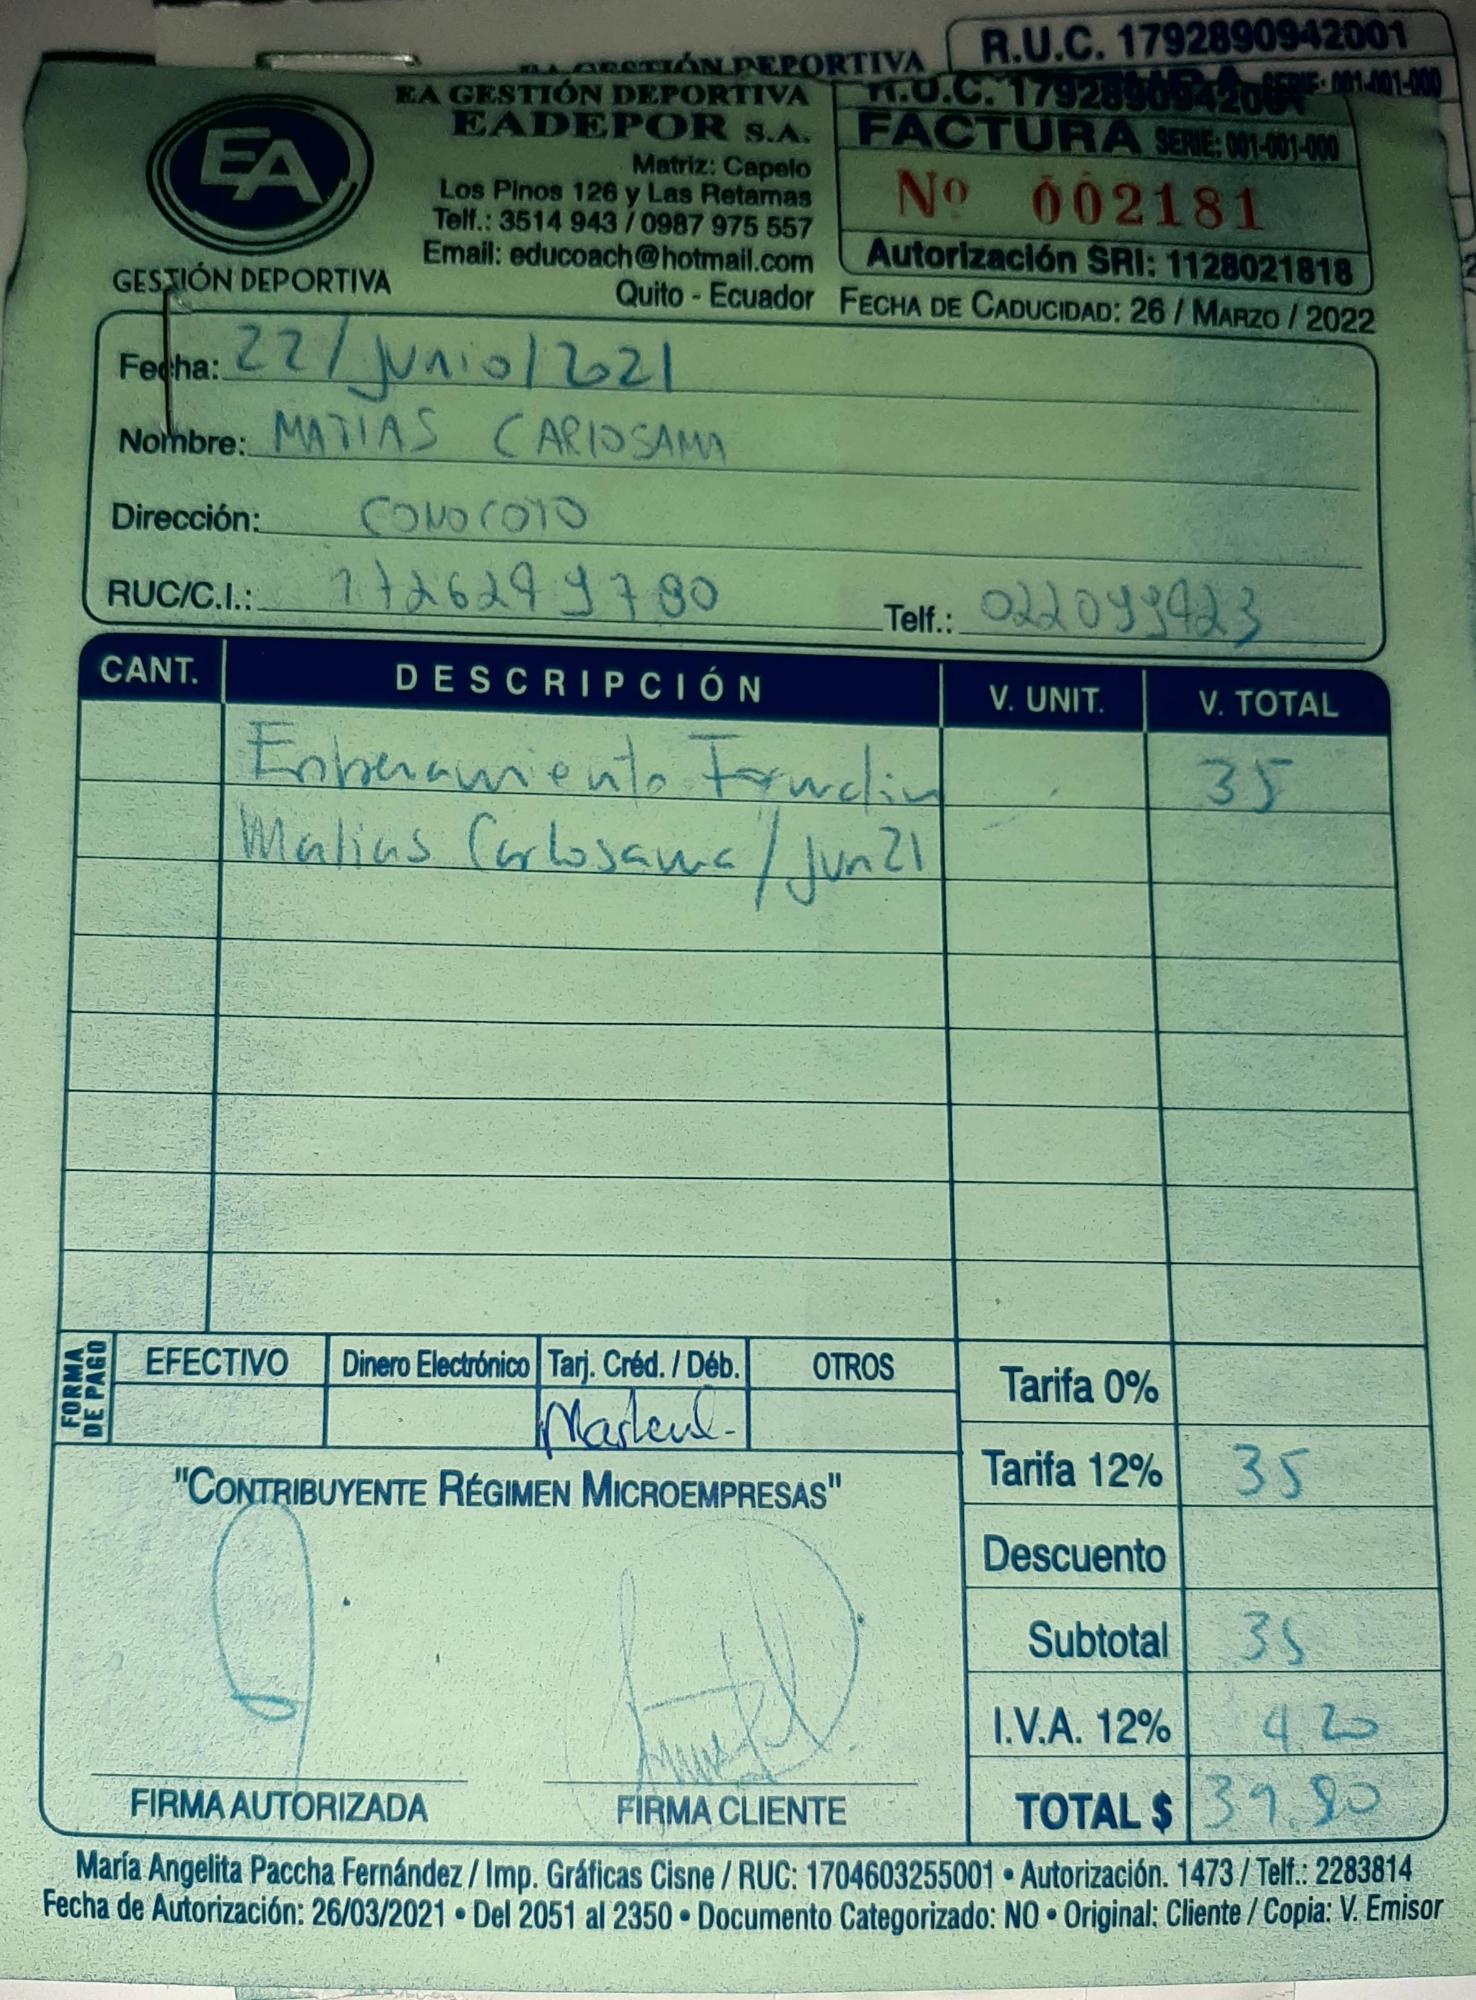 R.U.C. 1792890942001
EA GESTIÓN DEPORTIVA
SERIE: 001-001-000
EA
GESTIÓN DEPORTIVA
EA GESTIÓN DEPORTIVA
EADEPOR S.A.
Matriz: Capelo
Los Pinos 126 y Las Retamas
Telf.: 3514 943 / 0987 975 557
Email: educoach@hotmail.com
Quito - Ecuador
R.U.C. 1792890942001
FACTURA SERIE: 001-001-000
Nº 002181
Autorización SRI: 1128021818
FECHA DE CADUCIDAD: 26 / MARZO / 2022
Fecha: 22/junio/2021
Nombre: MATIAS CARLOSAMA
Dirección: CONOCOTO
RUC/C.I.: 1726299780 Telf.: 022099423
CANT. DESCRIPCIÓN V. UNIT. V. TOTAL
Entrenamiento 35
Matias Carlosama / Jun 21
FORMA DE PAGO
EFECTIVO Dinero Electrónico Tarj. Créd. / Déb. OTROS
"CONTRIBUYENTE RÉGIMEN MICROEMPRESAS"
Tarifa 0%
Tarifa 12% 35
Descuento
Subtotal 35
I.V.A. 12% 4.20
TOTAL $ 39.20
FIRMA AUTORIZADA FIRMA CLIENTE
María Angelita Paccha Fernández / Imp. Gráficas Cisne / RUC: 1704603255001 • Autorización. 1473 / Telf.: 2283814
Fecha de Autorización: 26/03/2021 • Del 2051 al 2350 • Documento Categorizado: NO • Original: Cliente / Copia: V. Emisor